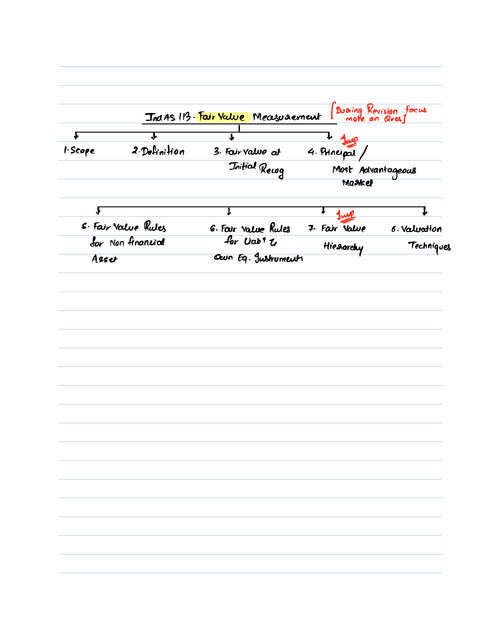 Ind AS 113 - Fair Value Measurement
[During Revision Focus
more on Ques]
1. Scope
2. Definition
3. Fair value at
Initial Recog
Imp
4. Principal /
Most Advantageous
Market
5. Fair Value Rules
for Non financial
Asset
6. Fair Value Rules
for Liab &
Own Eq. Instruments
Imp
7. Fair Value
Hierarchy
8. Valuation
Techniques